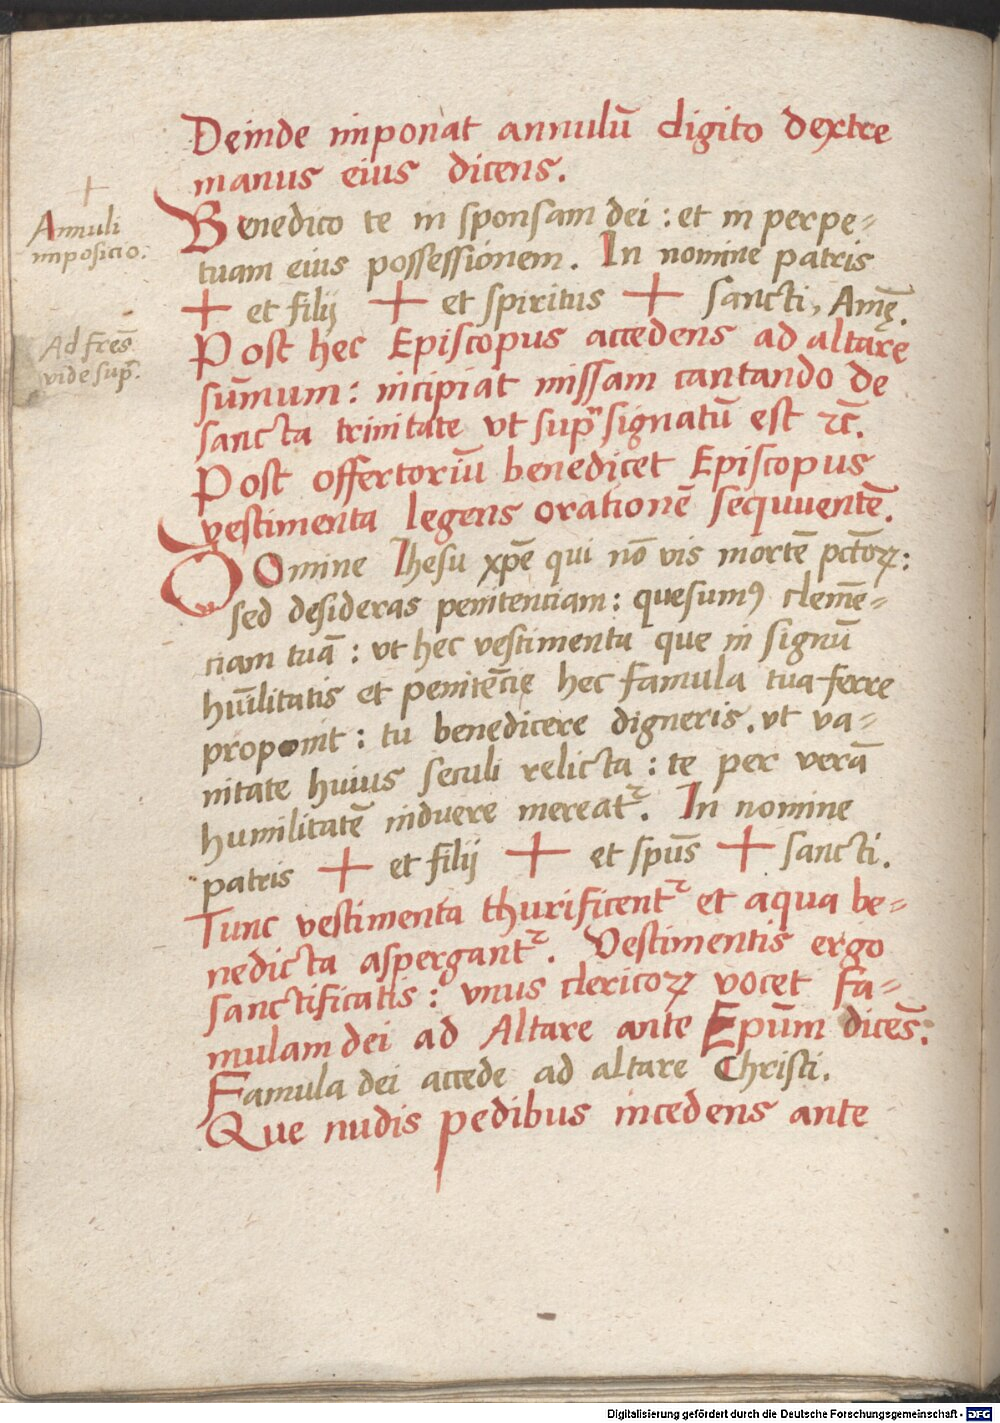 Deinde imponat annulū digito dextre
manus eius dicens.
+
Annuli
imposicio:
Benedico te in sponsam dei : et in perpe=
tuam eius possessionem. In nomine patris
+ et filij + et spiritus + sancti, Amę̄.
Ad frēs
vide sup̄.
Post hec Episcopus accedens ad altare
sum̄um : incipiat missam cantando de
sancta trinitate vt supͬ signatū est ⁊c̄.
Post offertoriū benedicet Episcopus
vestimenta legens orationē sequuentē.
DOmine Ihesu xp̄e qui nō vis mortē pctōꝝ :
sed desideras penitenciam : quesumꝰ clemē=
ciam tuā : vt hec vestimenta que in signū
hūilitatis et penitēcię hec famula tua ferre
proponit : tu benedicere digneris, vt va=
nitate huius seculi relicta : te per verā
humilitatē induere mereatᷣ. In nomine
patris + et filij + et spūs + sancti.
Tunc vestimenta thurificentᷣ et aqua be=
nedicta aspergantᷣ. Vestimentis ergo
sanctificatis : vnus clericoꝝ vocet fa=
mulam dei ad Altare ante Epūm dicēs:
Famula dei accede ad altare Christi.
Que nudis pedibus incedens ante
Digitalisierung gefördert durch die Deutsche Forschungsgemeinschaft - DFG